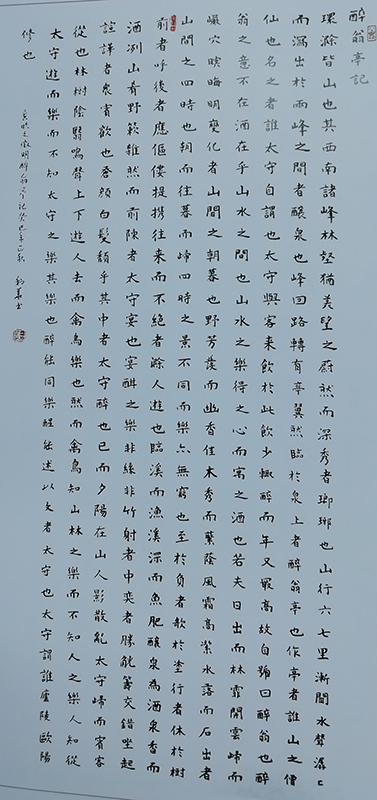 醉翁亭記
環滁皆山也其西南諸峰林壑猶美望之蔚然而深秀者瑯琊也山行六七里漸聞水聲潺ミ
而瀉出於兩峰之間者釀泉也峰回路轉有亭翼然臨於泉上者醉翁亭也作亭者誰山之僧
仙也名之者誰太守自謂也太守與客來飲於此飲少輒醉而年又最高故自號曰醉翁也醉
翁之意不在酒在乎山水之間也山水之樂得之心而寓之酒也若夫日出而林霏開雲歸而
巖穴暝晦明變化者山間之朝暮也野芳發而幽香佳木秀而繁蔭風霜高絜水落而石出者
山間之四時也朝而往暮而歸四時之景不同而樂亦無窮也至於負者歌於塗行者休於樹
前者呼後者應傴僂提攜往來而不絕者滁人遊也臨溪而漁溪深而魚肥釀泉為酒泉香而
酒冽山肴野蔌雜然而前陳者太守宴也宴酣之樂非絲非竹射者中奕者勝觥籌交錯坐起
諠譁者衆賓歡也蒼顏白髮頹乎其中者太守醉也已而夕陽在山人影散亂太守歸而賓客
從也林樹陰翳鳴聲上下遊人去而禽鳥樂也然而禽鳥知山林之樂而不知人之樂人知從
太守遊而樂而不知太守之樂其樂也醉能同樂醒能述以文者太守也太守謂誰廬陵歐陽
修也
文徵明醉翁亭記癸巳年